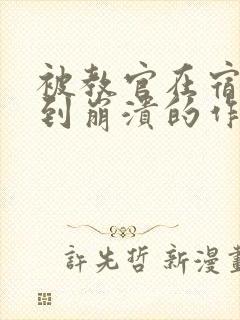 被教官在宿
到崩溃的作
許先哲 新漫畫